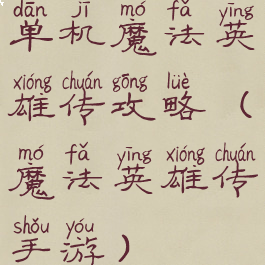 dān jī mó fǎ yīng
单机魔法英
xióng chuán gōng lüè
雄传攻略（
mó fǎ yīng xióng chuán
魔法英雄传
shǒu yóu
手游）